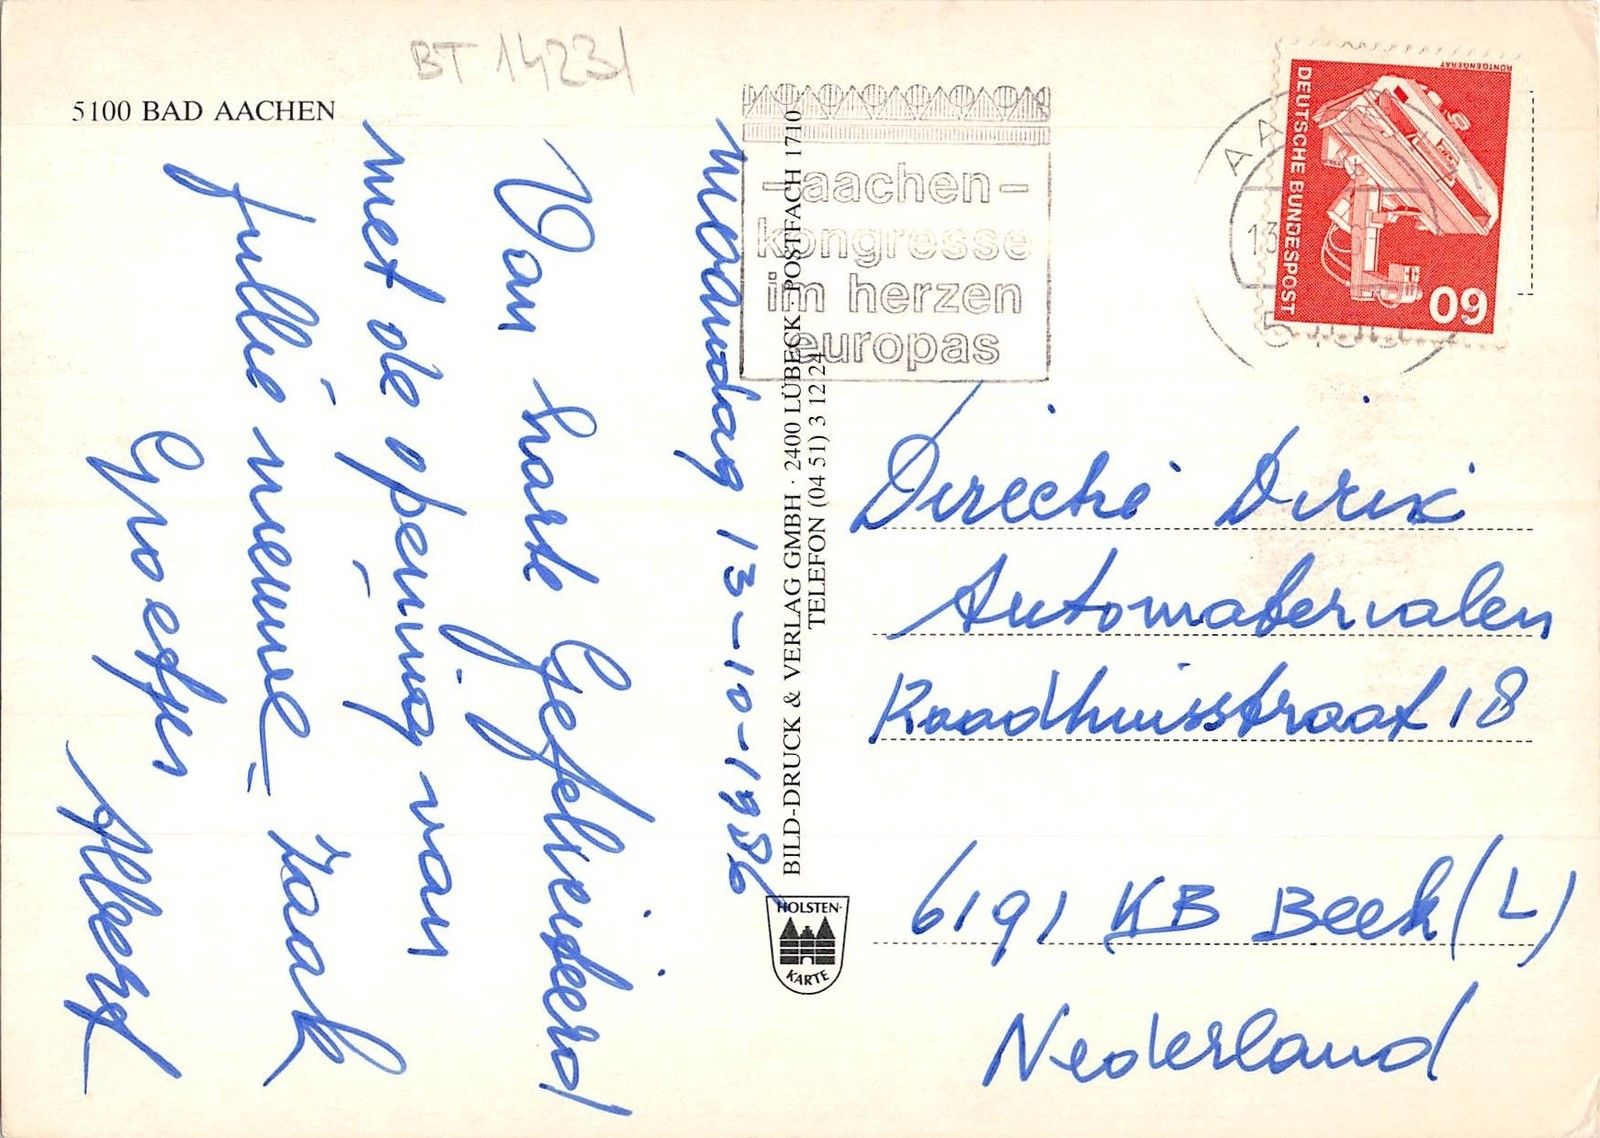 BT 14231
5100 BAD AACHEN
Maandag 13-10-1986
Van harte Gefeliciteerd
met de opening van
jullie nieuwe zaak
Groetjes
Albert
BILD-DRUCK & VERLAG GMBH · 2400 LÜBECK · POSTFACH 1710
TELEFON (04 51) 3 12 24
HOLSTEN-
KARTE
-aachen-
kongresse
im herzen
europas
AA
13
5100
RÖNTGENGERÄT
DEUTSCHE BUNDESPOST
60
Directie Dirix
Automaterialen
Raadhuisstraat 18
6191 KB Beek (L)
Nederland